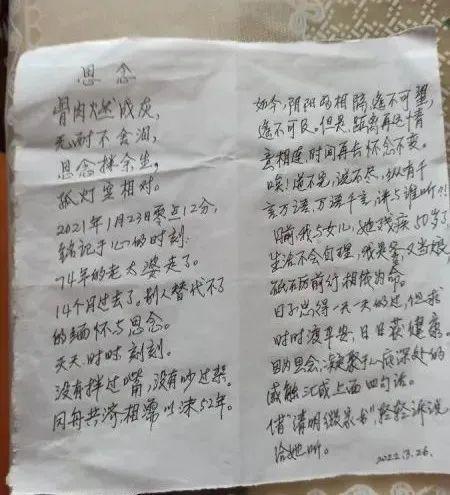 思念
骨肉燃成灰,
无耐不含泪,
思念拌余生,
孤灯空相对。
2021年1月23日零点12分,
铭记于心的时刻:
74年的老太婆走了。
14个月过去了。别人替代不了
的缅怀与思念。
天天、时时、刻刻。
没有拌过嘴,没有吵过架。
同舟共济、相濡以沫52年。
如今,阴阳两相隔,遥不可望,
遥不可及。但是,距离再远情
意相连,时间再长怀念不变。
唉!道不完,说不尽,纵有千
言万语,万语千言,讲与谁听!!
目前,我与女儿,她残疾50岁了,
生活不会自理,我是爹又当娘,
砥砺前行相依为命。
日子总得一天一天的过,但求
时时渡平安,日日获健康。
因为思念,凝聚于心底深处的
感触,汇成上面四句话。
借"清明缴家书",轻轻诉说
给她听。
2022.3.26.